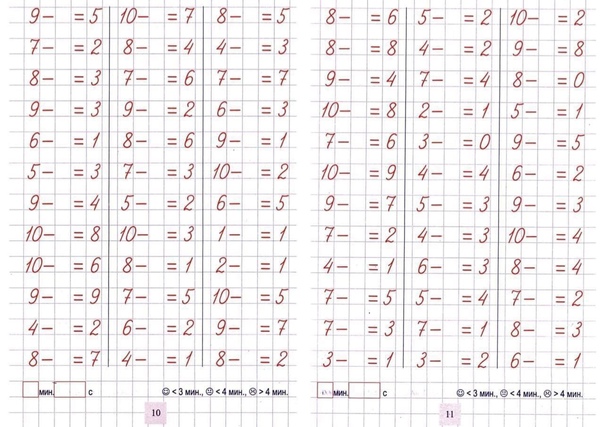 9– =5 10– =7 8– =5
7– =2 8– =4 4– =3
8– =3 7– =6 7– =7
9– =3 9– =2 6– =3
6– =1 8– =6 9– =1
5– =3 7– =3 10– =2
9– =4 5– =2 6– =5
10– =8 10– =3 1– =1
10– =6 8– =1 2– =1
9– =9 7– =5 10– =5
4– =2 6– =2 9– =7
8– =7 4– =1 8– =2
мин. с ☺ < 3 мин., 😐 < 4 мин., ☹ > 4 мин.
10
8– =6 5– =2 10– =2
8– =8 4– =2 9– =8
9– =4 7– =4 8– =0
10– =8 2– =1 5– =1
7– =6 3– =0 9– =5
10– =9 4– =4 6– =2
9– =7 5– =3 9– =3
7– =2 4– =3 10– =4
4– =1 6– =3 8– =4
7– =5 5– =4 7– =2
7– =3 7– =1 8– =3
3– =1 3– =2 6– =1
мин. с ☺ < 3 мин., 😐 < 4 мин., ☹ > 4 мин.
11